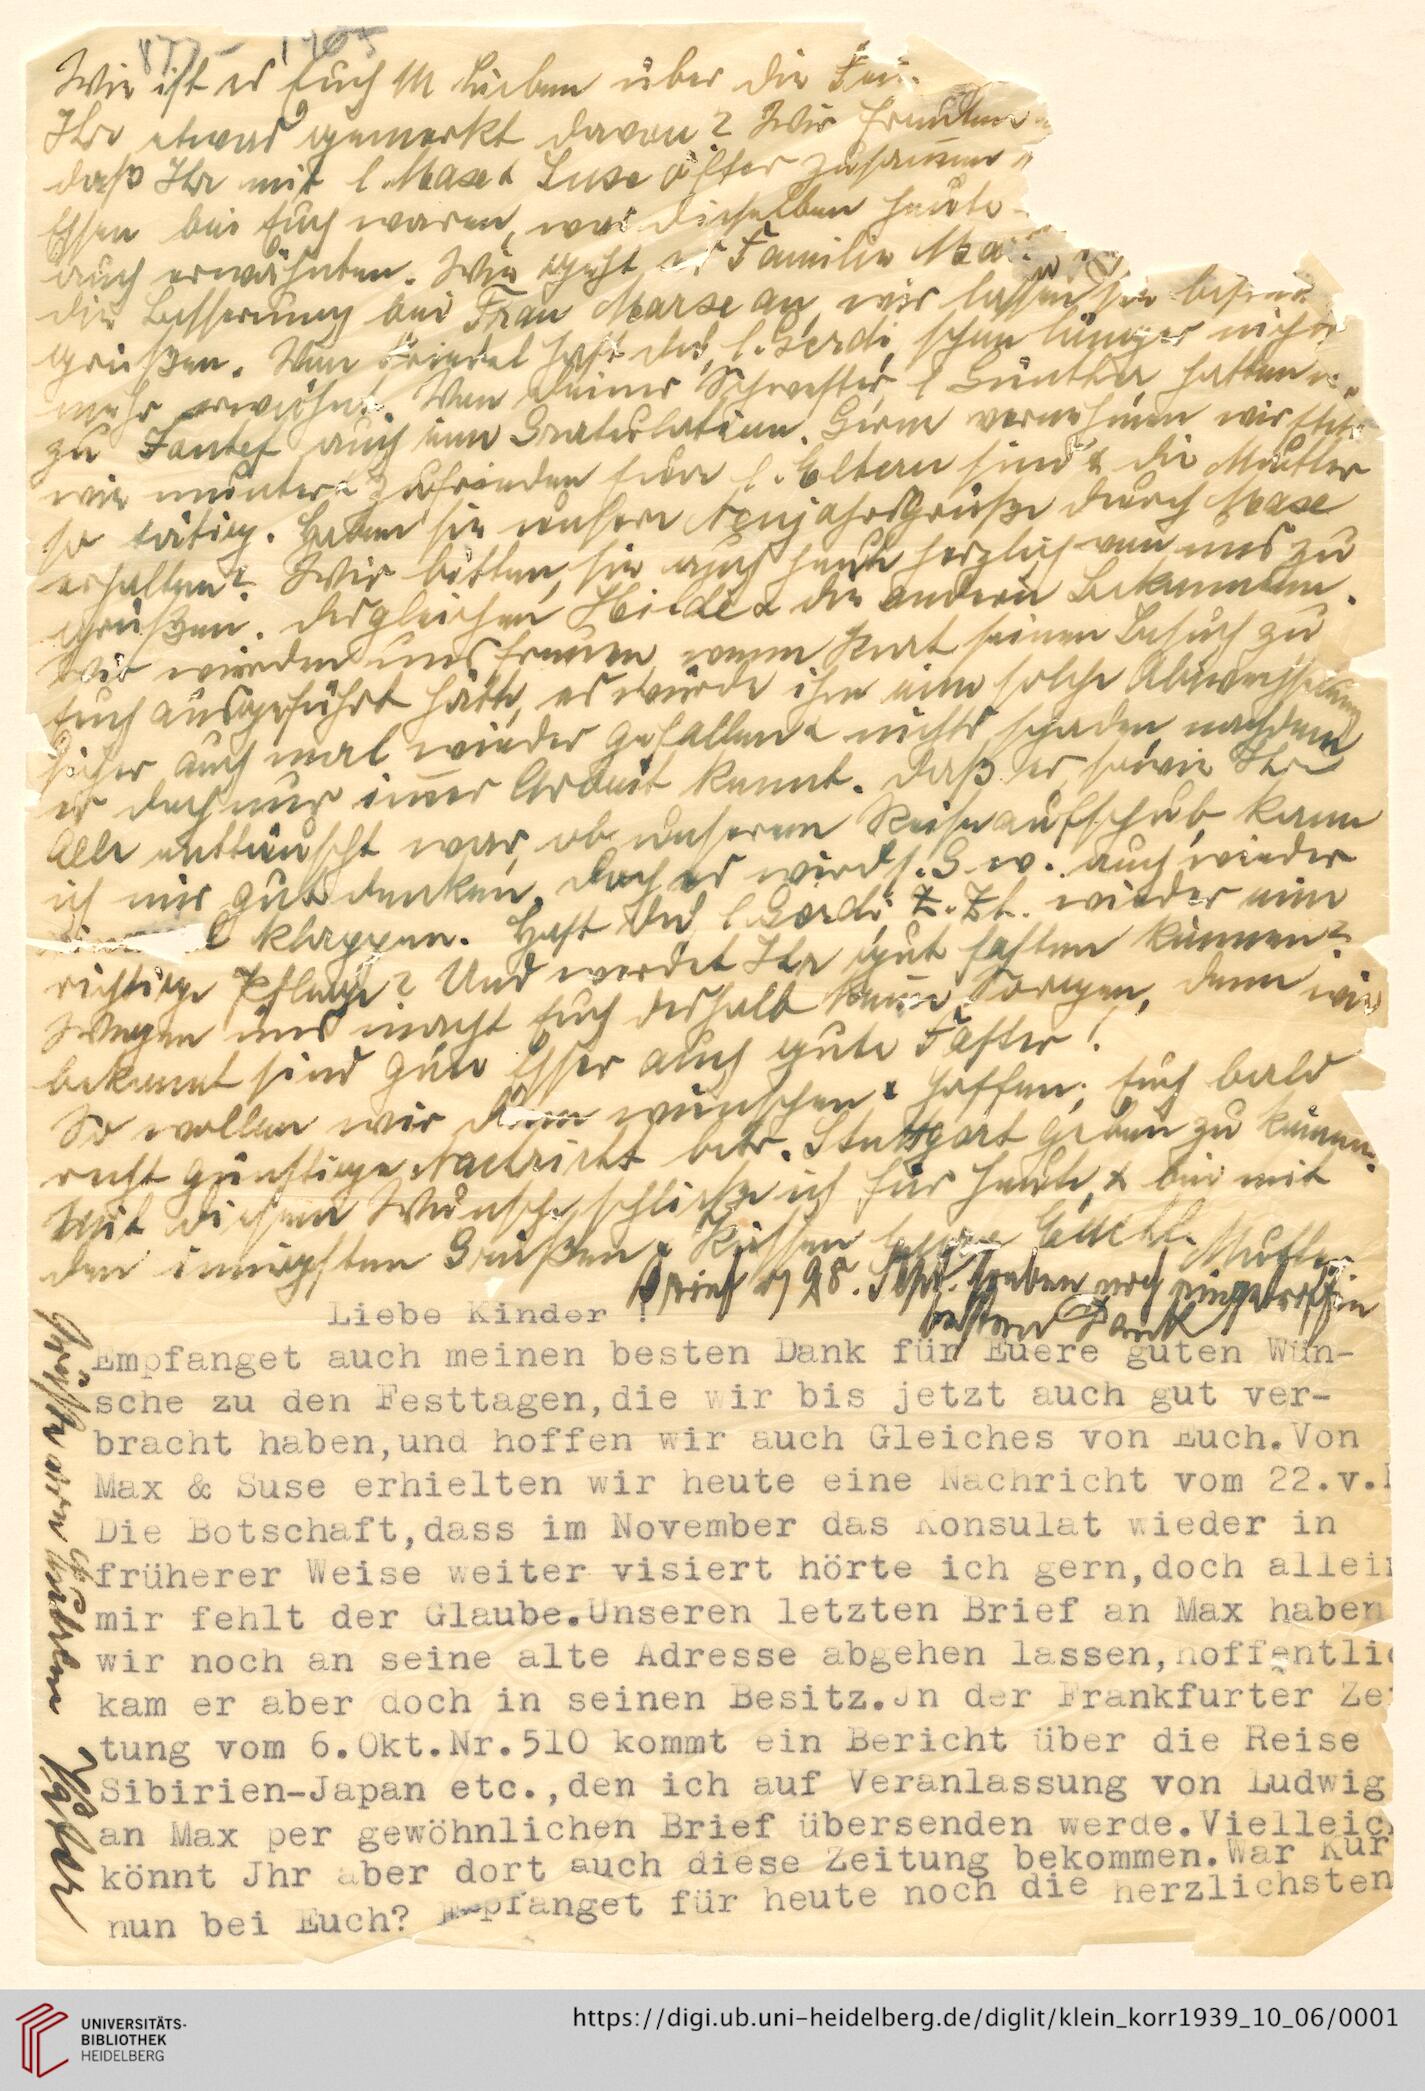 877 - 1965
Wie ist es Euch m Lieben über die
Ihr etwas gemerkt davon? Wir freuten
daß Ihr mit l. Max & Suse öfter zusammen
Essen bei Euch waren, was dieselben heute
auch erwähnten. Wie geht es Familie
die Besserung bei Frau Marx an, wir lassen sie
grüßen. Von Friedel hast du, l. Gerdi, schon länger nicht
mehr erwähnt. Von Deiner Schwester, l. Günther hatten
zu auch eine Gratulation. Gerne vernehmen wir stets
wie munter & zufrieden Eure l. Eltern sind & die Mutter
so tätig. Haben sie unsere Neujahrsgrüße durch Max
erhalten? Wir bitten, sie auch heute herzlich von uns zu
grüßen. desgleichen Hilde & die andern Bekannten.
Wir würden uns freuen, wenn Kurt seinen Besuch zu
Euch ausgeführt hätte, es würde ihm eine solche Abwechselung
sicher auch mal wieder gefallen & nichts schaden nachdem
er doch nur immer Arbeit kennt. Daß er, sowie Ihr
Alle enttäuscht war, ob unserem Reiseaufschub, kann
ich mir gut denken, doch es wird s. G. w. auch wieder
klappen. Hast du l. Gerdi z. Zt. wieder eine
richtige Pflege? Und werdet Ihr gut fasten können?
Wegen uns macht Euch deshalb keine Sorgen, denn wie
bekannt sind gute Esser auch gute Faster!
So wollen wir denn wünschen & hoffen, Euch bald
recht günstige Nachricht betr. Stuttgart geben zu können.
Mit diesem Wunsche, schließe ich für heute, & bin mit
den innigsten Grüßen & Küssen Eure Mutter
Brief v 28. Sept. soeben noch eingetroffen
besten Dank
Liebe Kinder !
Empfanget auch meinen besten Dank für Euere guten Wün-
sche zu den Festtagen,die wir bis jetzt auch gut ver-
bracht haben,und hoffen wir auch Gleiches von Euch.Von
Max & Suse erhielten wir heute eine Nachricht vom 22.v.
Die Botschaft,dass im November das Konsulat wieder in
früherer Weise weiter visiert hörte ich gern,doch allein
mir fehlt der Glaube.Unseren letzten Brief an Max haben
wir noch an seine alte Adresse abgehen lassen,hoffentlic
kam er aber doch in seinen Besitz.Jn der Frankfurter Zei
tung vom 6.Okt.Nr.510 kommt ein Bericht über die Reise
Sibirien-Japan etc.,den ich auf Veranlassung von Ludwig
an Max per gewöhnlichen Brief übersenden werde.Vielleic
könnt Jhr aber dort auch diese Zeitung bekommen.War Kur
nun bei Euch? Empfanget für heute noch die herzlichsten
Grüße von Vater
UNIVERSITÄTS-
BIBLIOTHEK
HEIDELBERG
https://digi.ub.uni-heidelberg.de/diglit/klein_korr1939_10_06/0001